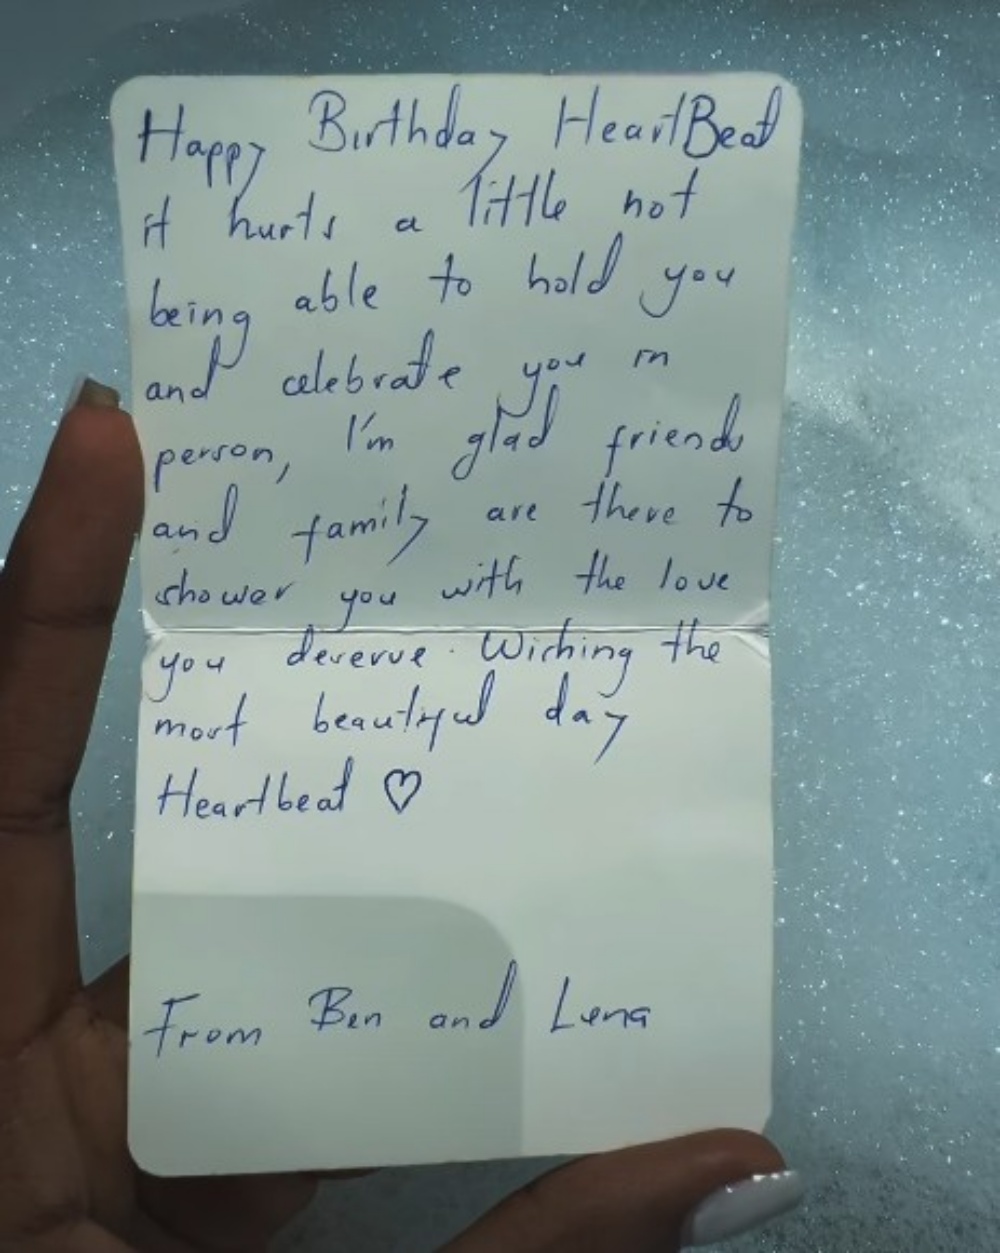 Happy Birthday HeartBeat
it hurts a little not
being able to hold you
and celebrate you in
person, I'm glad friends
and family are there to
shower you with the love
you deserve. Wishing the
most beautiful day
Heartbeat ♡
From Ben and Lena